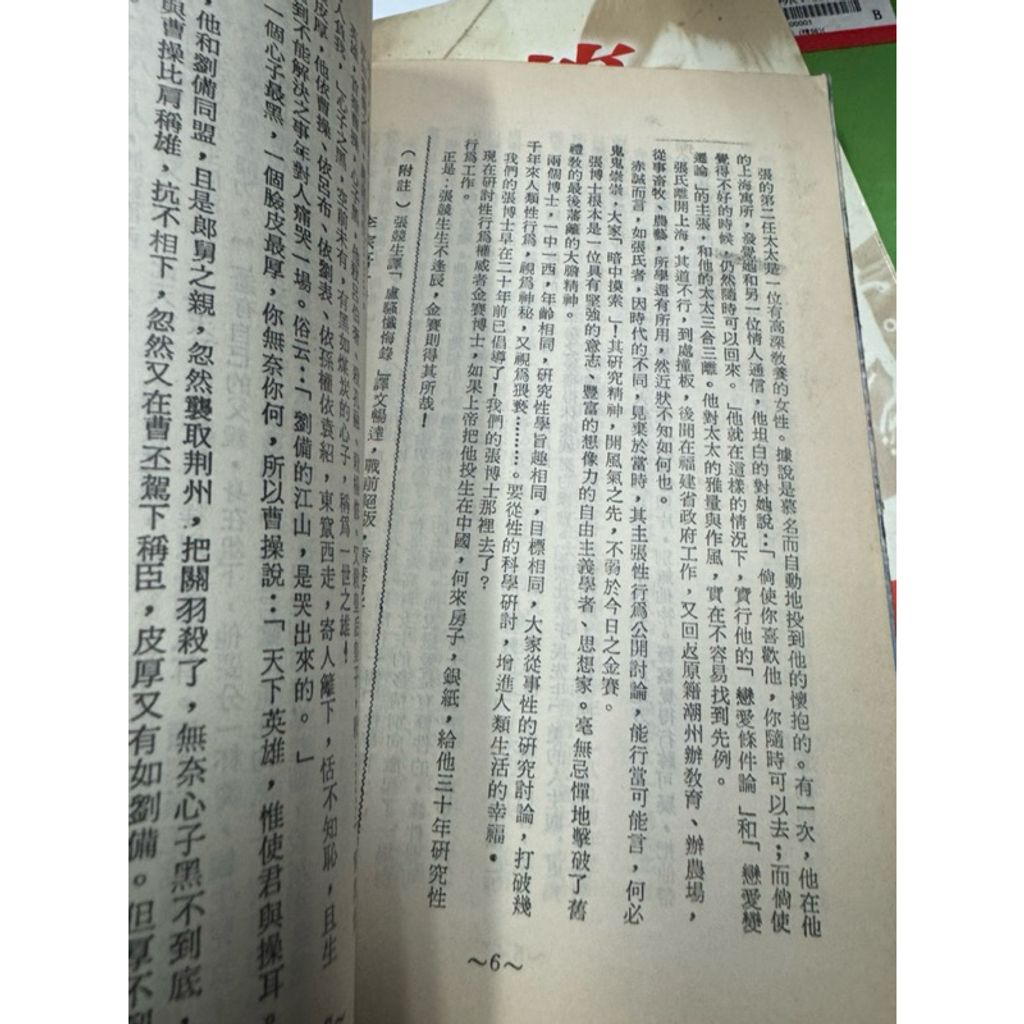 張的第二任太太是一位有高深教養的女性。據說是慕名而自動地投到他的懷抱的。有一次，他在他
的上海寓所，發覺她和另一位情人通信，他坦白的對她說：「倘使你喜歡他，你隨時可以去；而倘使
覺得不好的時候，仍然隨時可以回來。」他就在這樣的情況下，實行他的「戀愛條件論」和「戀愛變
遷論」的主張，和他的太太三合三離。他對太太的雅量與作風，實在不容易找到先例。
張氏離開上海，其道不行，到處撞板，後聞在福建省政府工作，又回返原籍潮州辦教育、辦農場，
從事畜牧、農藝，所學還有所用，然近狀不知如何也。
赤誠而言，如張氏者，因時代的不同，見棄於當時，其主張性行為公開討論，能行當可能言，何必
鬼鬼祟祟，大家「暗中摸索」！其研究精神，開風氣之先，不弱於今日之金賽。
張博士根本是一位具有堅強的意志、豐富的想像力的自由主義學者、思想家。毫無忌憚地擊破了舊
禮教的最後藩籬的大膽精神。
兩個博士，一中一西，年齡相同，研究性學旨趣相同，目標相同，大家從事性的研究討論，打破幾
千年來人類性行為，視為神秘，又視為猥褻………。要從性的科學研討，增進人類生活的幸福。
我們的張博士早在二十年前已倡導了！我們的張博士那裡去了？
現在研討性行為權威者金賽博士，如果上帝把他投生在中國，何來房子，銀紙，給他三十年研究性
行為工作。
正是：張競生生不逢辰，金賽則得其所哉！
（附註）張競生譯「盧騷懺悔錄」譯文暢達，戰前絕版，
～6～
人負我，」心子之黑，空前未有，有黑如煤炭的心子，稱為一世之雄！
皮厚，他依曹操、依呂布、依劉表、依孫權、依袁紹，東竄西走，寄人籬下，恬不知恥，且生
到不能解決之事年對人痛哭一場。俗云：「劉備的江山，是哭出來的。」
一個心子最黑，一個臉皮最厚，你無奈你何，所以曹操說：「天下英雄，惟使君與操耳
，他和劉備同盟，且是郎舅之親，忽然襲取荆州，把關羽殺了，無奈心子黑不到底，
與曹操比肩稱雄，抗不相下，忽然又在曹丕駕下稱臣，皮厚又有如劉備。但厚不到
00001
B